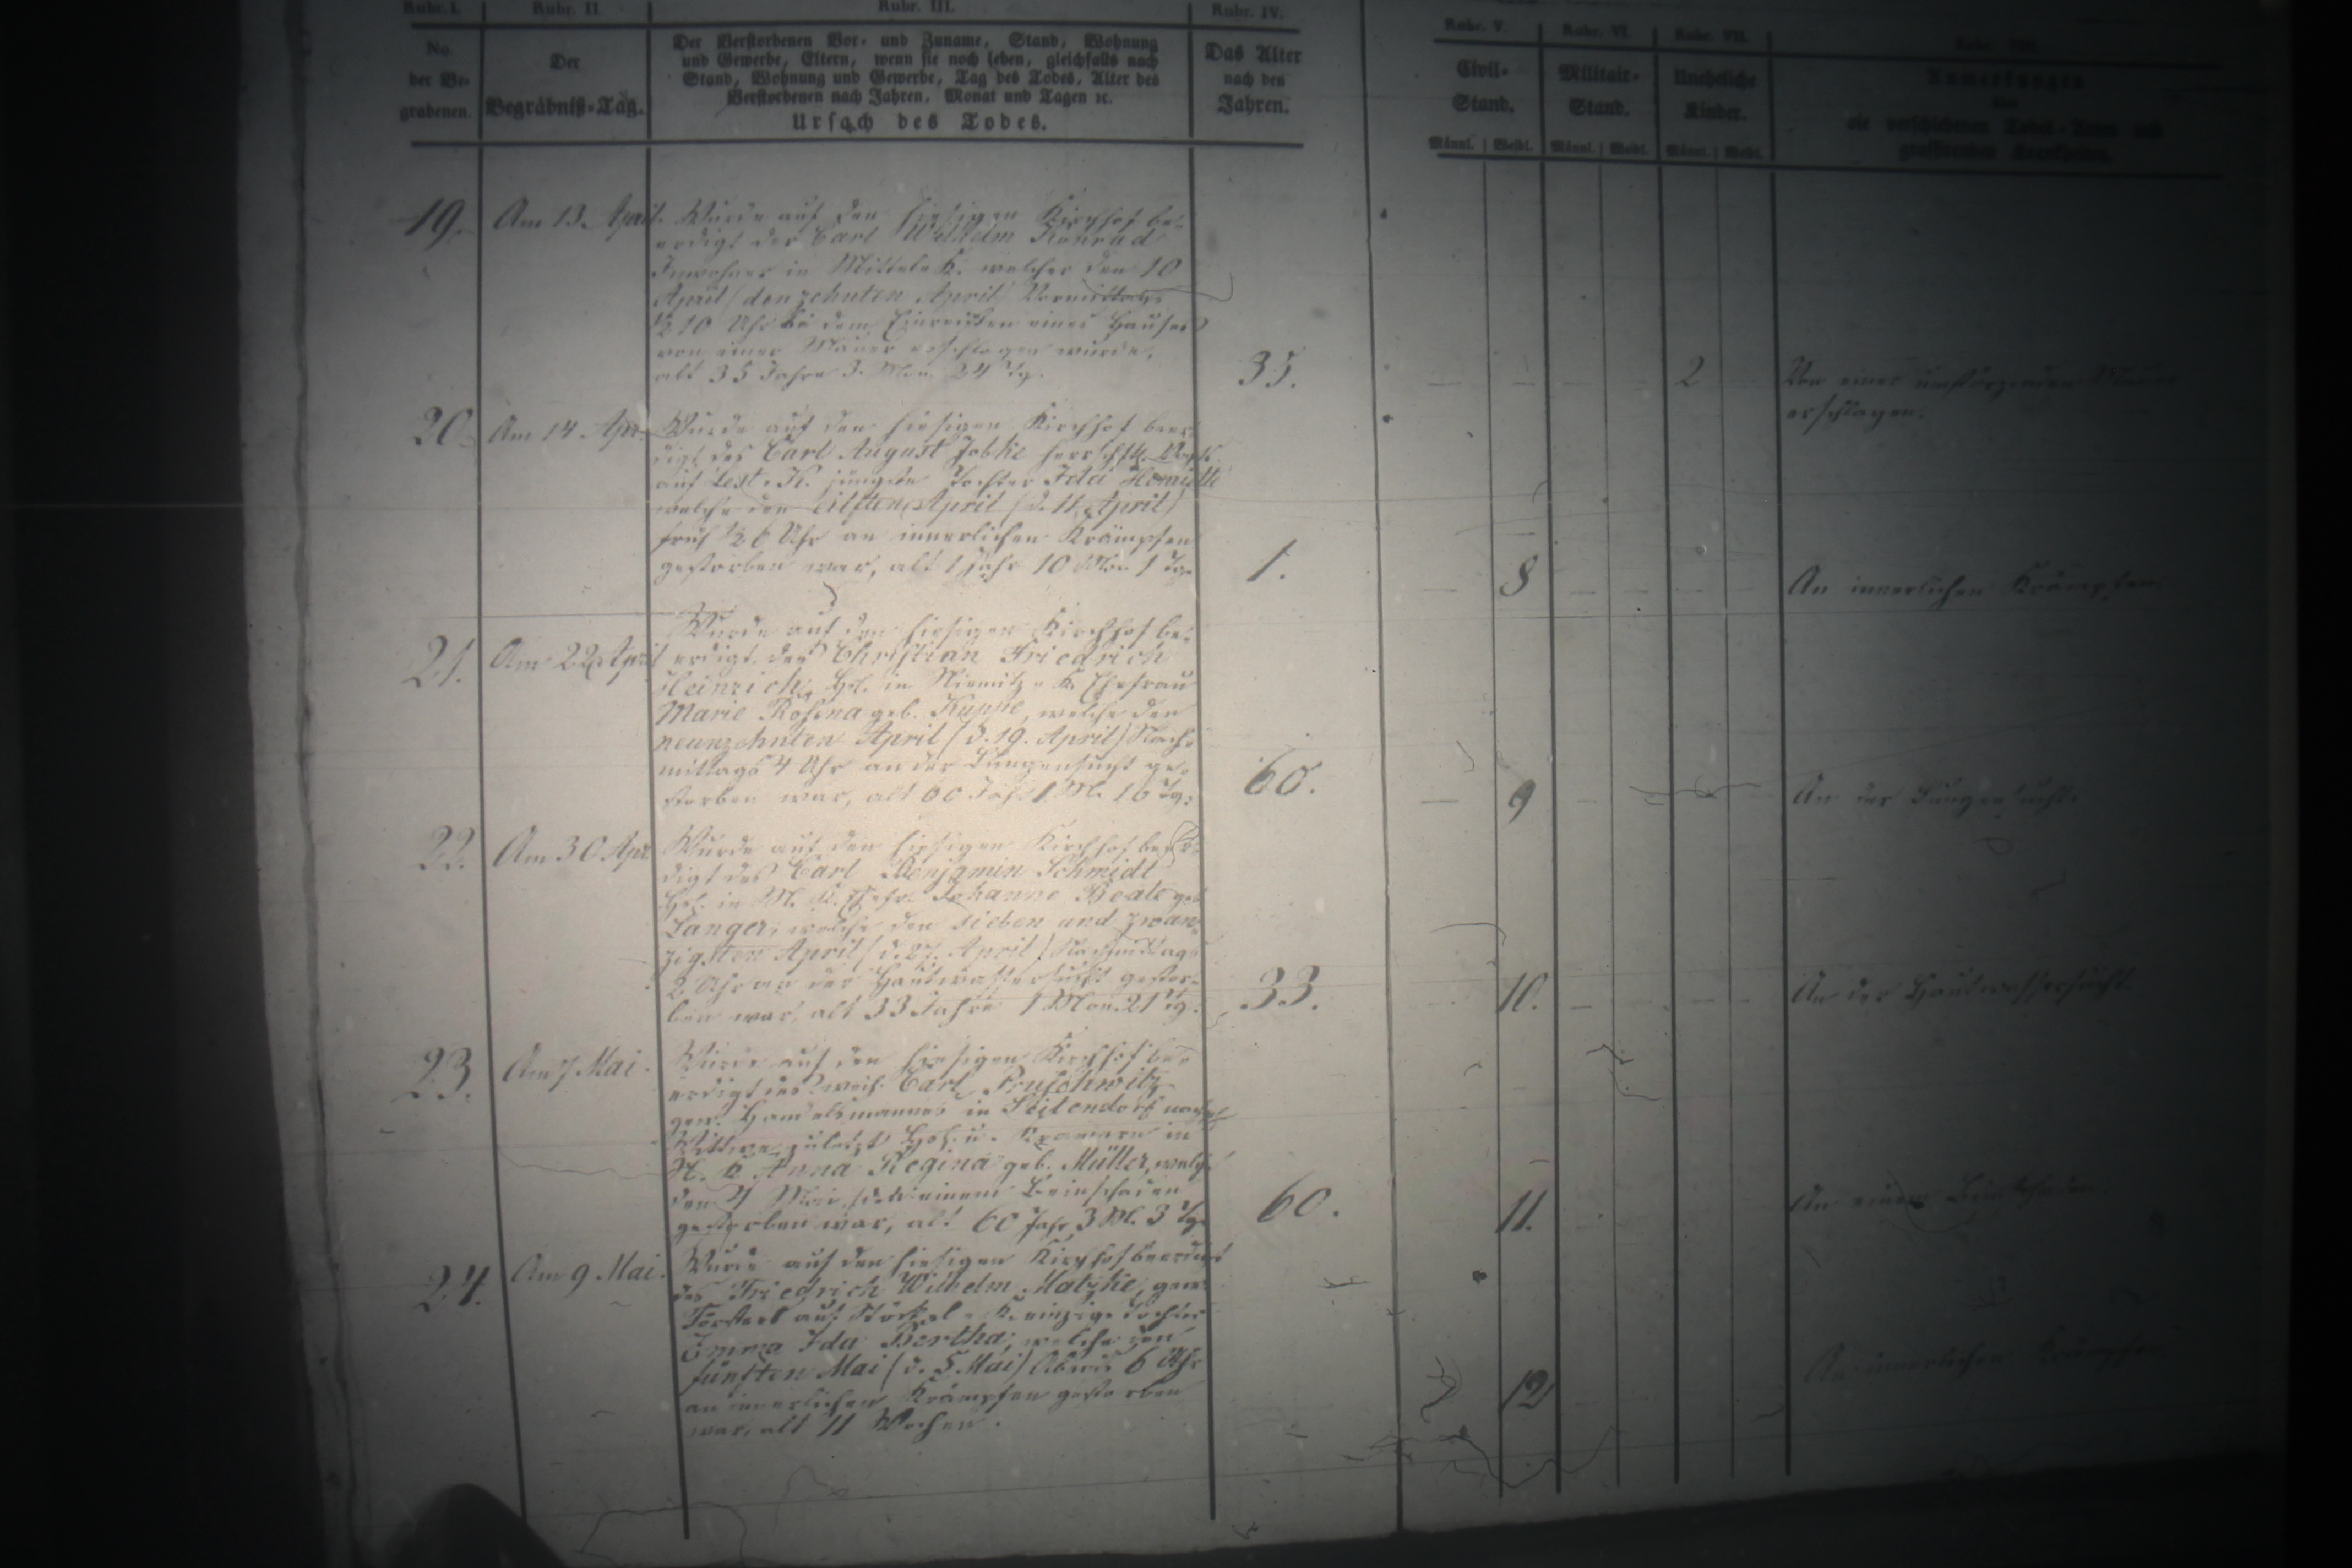 Rubr. I. Rubr. II Rubr. III. Rubr. IV. Rubr. V. Rubr. VI. Rubr. VII. Rubr. VIII.
No.
der Be-
grabenen.
Der
Begräbniß-Tag.
Der Verstorbenen Vor- und Zuname, Stand, Wohnung
und Gewerbe, Eltern, wenn sie noch leben, gleichfalls nach
Stand, Wohnung und Gewerbe, Tag des Todes, Alter des
Verstorbenen nach Jahren, Monat und Tagen ꝛc.
Ursach des Todes.
Das Alter
nach den
Jahren.
Civil-
Stand.
Männl. | Weibl.
Militair-
Stand.
Männl. | Weibl.
Uneheliche
Kinder.
Männl. | Weibl.
Anmerkungen
über
die verschiedenen Todes-Arten und
grassirenden Krankheiten.
19. Am 13. April. Wurde auf den hiesigen Kirchhof be-
erdigt der Carl Wilhelm Konrad
Inwohner in Mittel K. welcher den 10
April (den zehnten April) Vormittags
½10 Uhr bei dem Einreißen eines Hauses
von einer Mauer erschlagen wurde,
alt 35 Jahre 3. Mon. 24 Tg.
35. 2 Von einer umstürzenden Mauer
erschlagen.
20. Am 14. Apr. Wurde auf den hiesigen Kirchhof beer-
digt des Carl August Jobke herrschftl.
auf K. jüngste Tochter Ida Henriette
welche den eilften April (d. 11. April)
früh ½6 Uhr an innerlichen Krämpfen
gestorben war, alt 1 Jahr 10 Mon 1 Tg.
1. 8 An innerlichen Krämpfen
21. Am 22 April Wurde auf den hiesigen Kirchhof be-
erdigt des Christian Friedrich
Heinrich, in K. Ehefrau
Marie Rosina geb. welche den
neunzehnten April (d. 19. April) Nach-
mittags 4 Uhr an der Lungensucht ge-
storben war, alt 60 Jah. 1 M. 16 Tg.
60. 9 An der Lungensucht.
22. Am 30 Apr. Wurde auf den hiesigen Kirchhof beer-
digt des Carl Benjamin Schmidt
in M. K. Ehefr. Johanne Beate geb
Langer, welche den sieben und zwan-
zigsten April (d. 27. April) Nachmittags
2 Uhr an der Hautwassersucht gestor-
ben war, alt 33 Jahre 1 Mon. 21 Tg.
33. 10. An der Hautwassersucht.
23. Am 7 Mai. Wurde auf den hiesigen Kirchhof be-
erdigt des weil. Carl Pruschwitz
gew. Handelsmannes in Seitendorf
Wittwe, zuletzt in
K. Anna Regina geb. Müller, welche
den 4 Mai an einem Beinschaden
gestorben war, alt 60 Jahr 3 M. 3 Tg.
60. 11. An einem Beinschaden
24. Am 9 Mai. Wurde auf den hiesigen Kirchhof beerdigt
des Friedrich Wilhelm Matzke, gew.
Försters auf K. einzige Tochter
Emma Ida Bertha, welche den
fünften Mai (d. 5 Mai) Abends 6 Uhr
an innerlichen Krämpfen gestorben
war, alt 11 Wochen.
12 An innerlichen Krämpfen